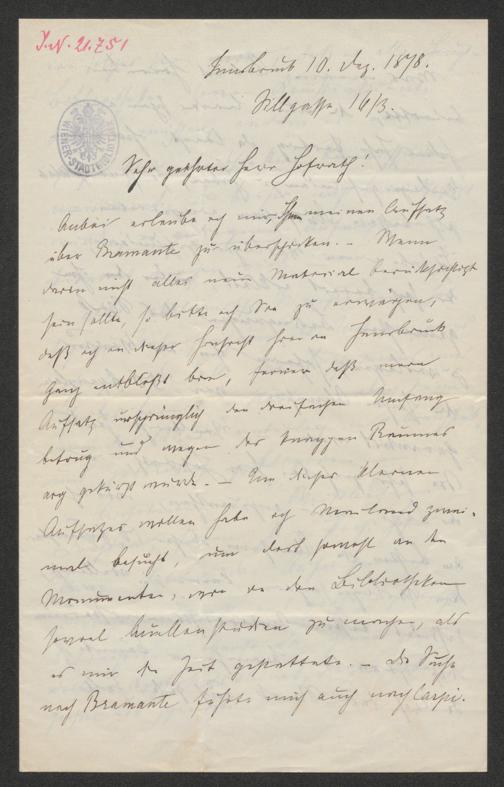 J.N. 21.751
Innsbruck 10. Dez. 1878.
Sillgasse 16/3.
WIENER STADTBIBLIOTHEK
Sehr geehrter Herr Hofrath!
Anbei erlaube ich mir, Ihnen meinen Aufsatz
über Bramante zu überschicken. – Wenn
darin nicht alles neue Material berücksichtigt
sein sollte, so bitte ich Sie zu erwägen,
daß ich in dieser Hinsicht hier in Innsbruck
ganz entblößt bin, ferner daß mein
Aufsatz ursprünglich den dreifachen Umfang
betrug und wegen des knappen Raumes
arg gekürzt wurde. – Um dieses kleinen
Aufsatzes willen habe ich Mailand zwei-
mal besucht, um dort sowohl an den
Monumenten, wie in den Bibliotheken
soviel Quellenstudien zu machen, als
es mir die Zeit gestattete. – Die Suche
nach Bramante führte mich auch nach Carpi.